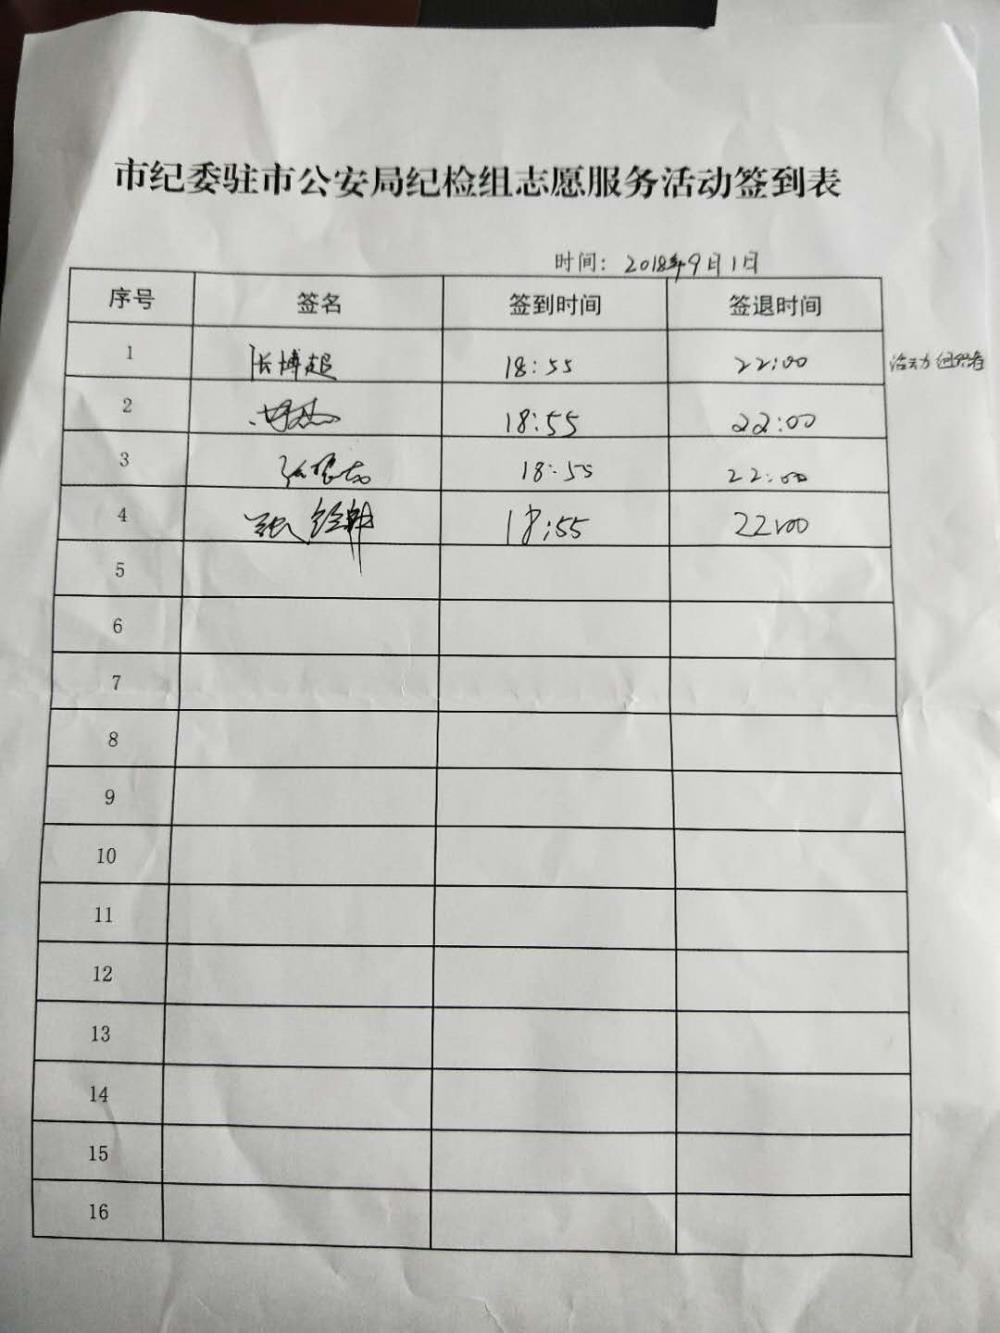 市纪委驻市公安局纪检组志愿服务活动签到表
时间: 2018年9月1日
序号 签名 签到时间 签退时间
1 张博超 18:55 22:00 活动组织者
2 18:55 22:00
3 18:55 22:00
4 张 18:55 22:00
5
6
7
8
9
10
11
12
13
14
15
16